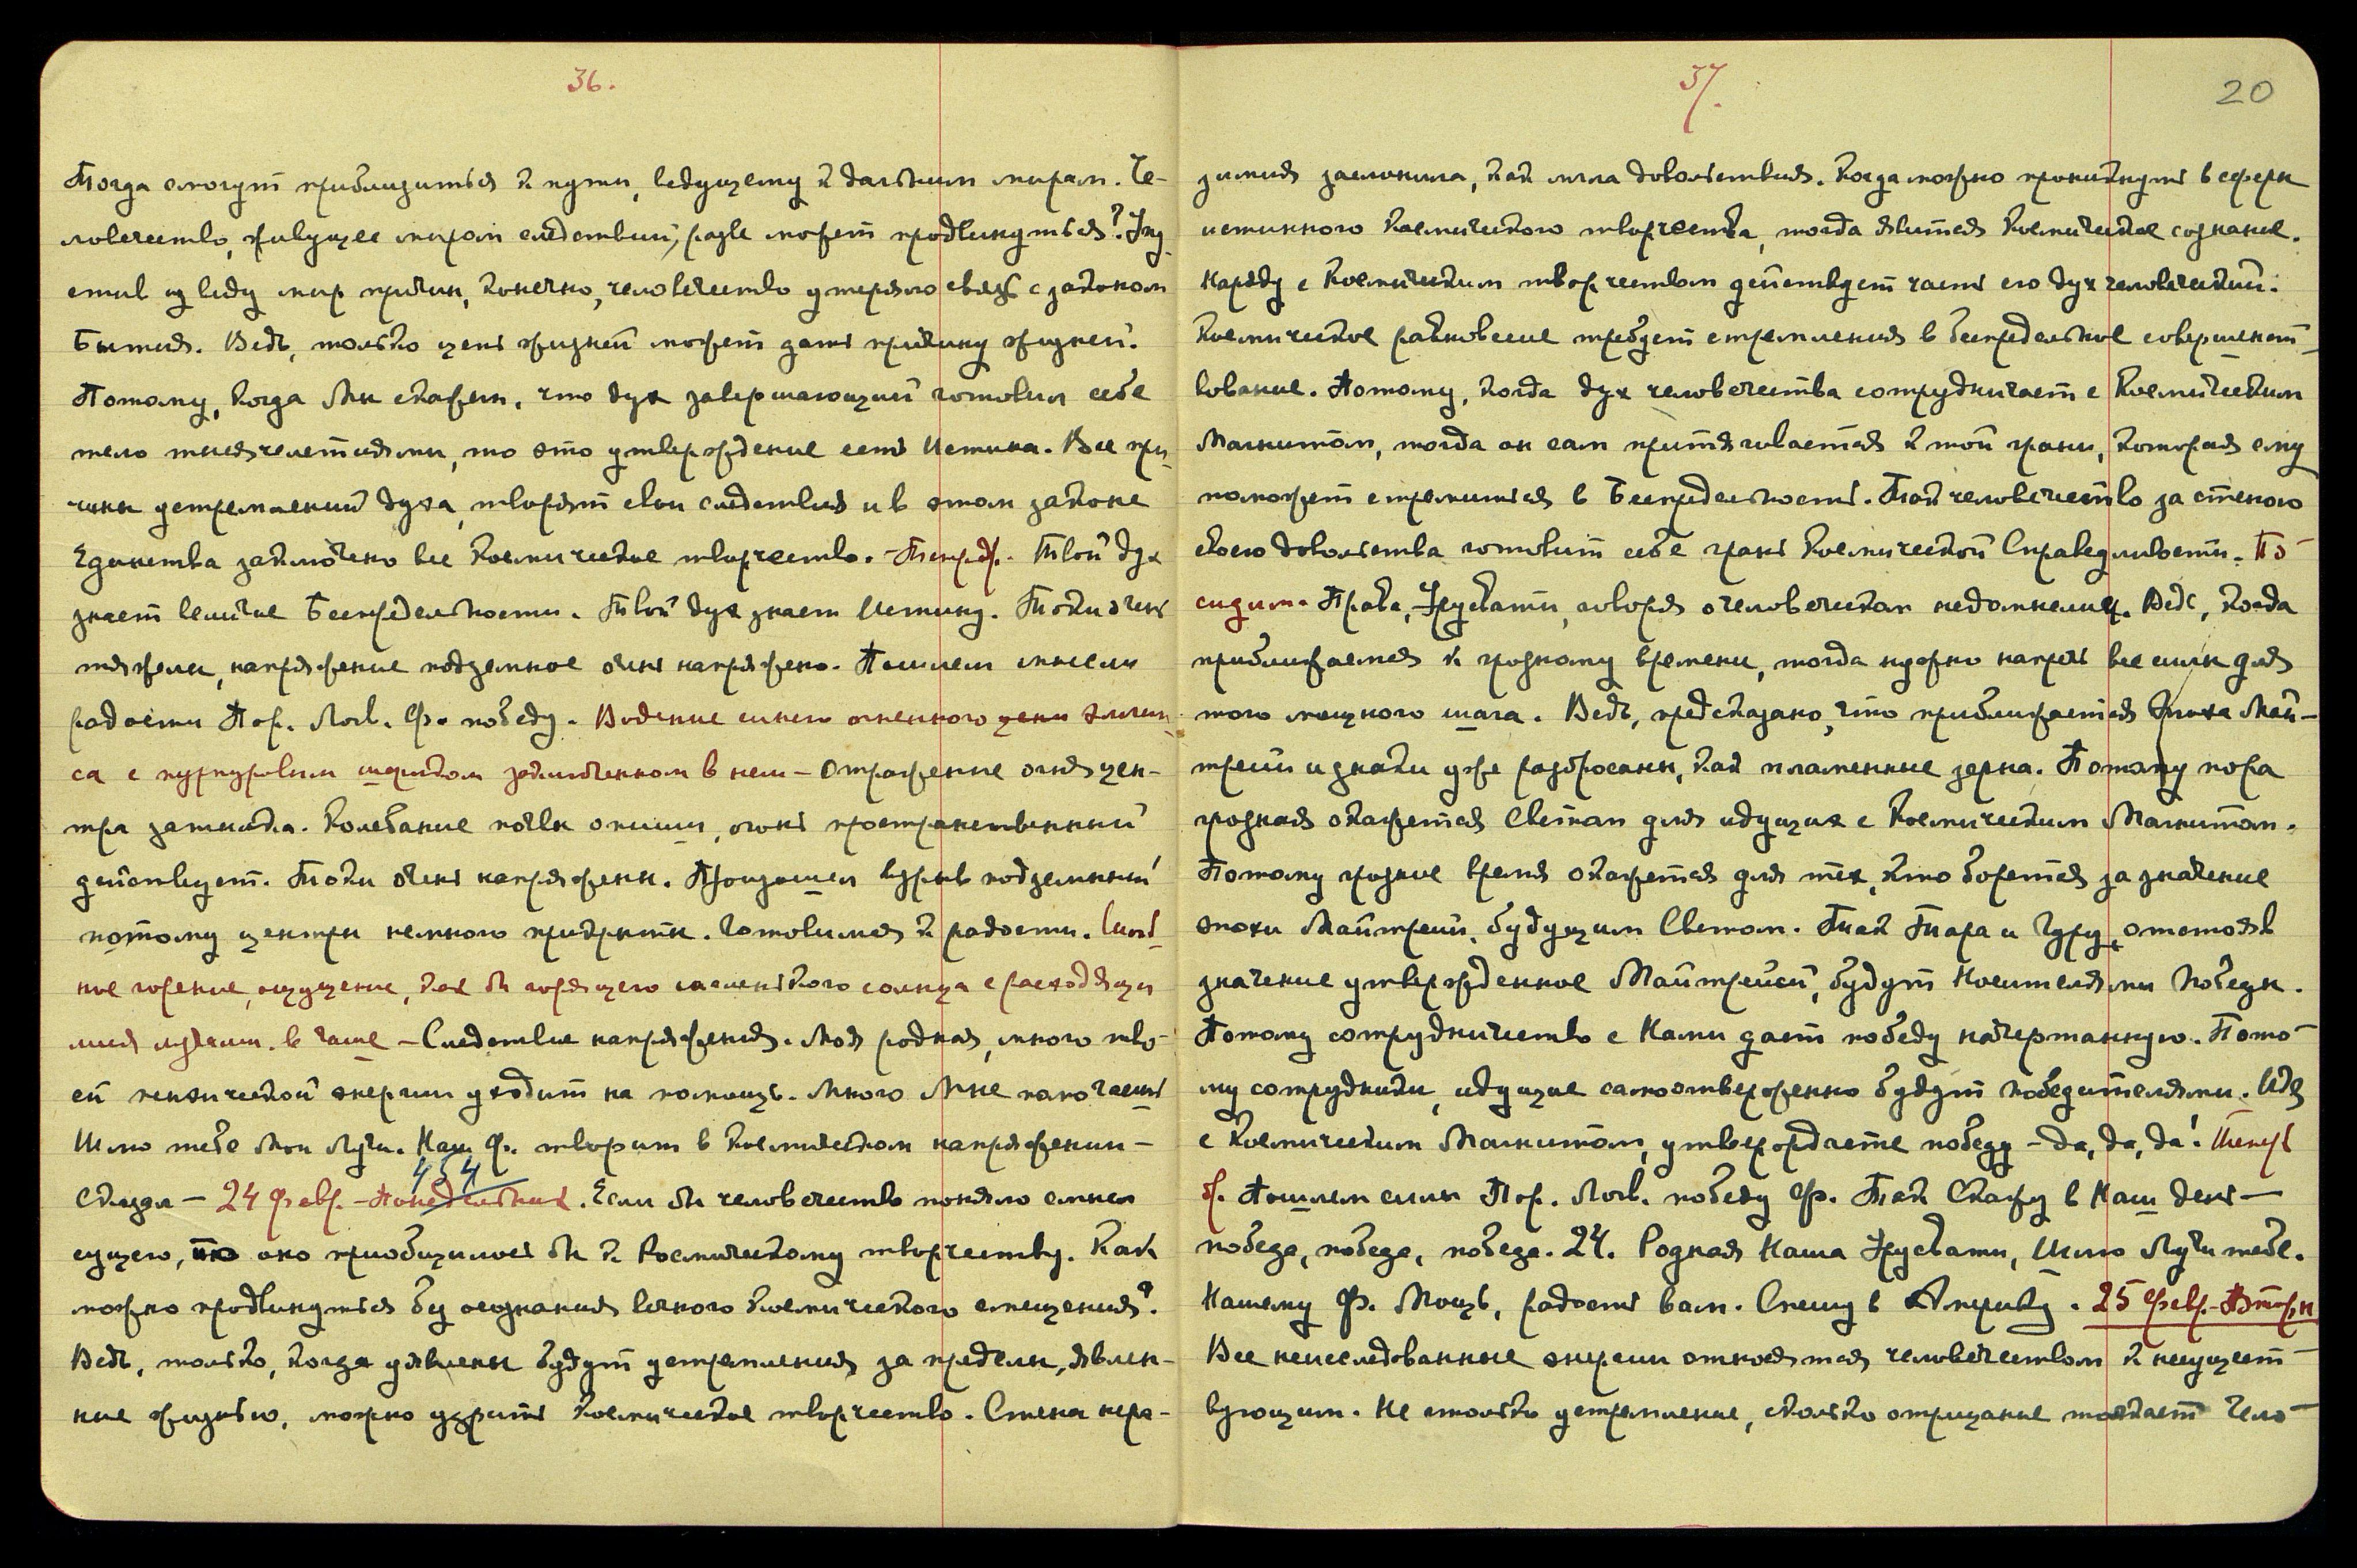 36.
Тогда смогут приблизиться к пути, ведущему к дальним мирам. Че-
ловечество, живущее миром следствий, разве может продвинуться? Упу
стив из виду мир причин, конечно, человечество утеряло связь с законом
Бытия. Ведь, только цепь жизней может дать причину жизней.
Потому, когда Мы скажем, что дух завершающий готовил себе
тело тысячелетиями, то это утверждение есть Истина. Все при-
чины устремлений духа, творят свои следствия и в этом законе
Единства заключено все космическое творчество. Твой дух
знает величие Беспредельности. Твой дух знает Истину. Токи очень
тяжелы, напряжение подземное очень напряжено. Пошлем мысли
радости Пор. Лог. Ф. победу. Видение синего огненного цени эллип
са с пурпуровым щитом заключенном в нем – Отражение огня цен-
тра затылка. Колебание почвы опиши, огонь пространственный
действует. Токи очень напряжены. Произошел взрыв подземный
потому центры немного прикрыты. Готовимся к радости. Силь
ное горение, ощущение, как бы горящего маленького солнца с расходящи
мися лучами в чаше – Следствие напряжения. Моя родная, много тво-
ей психической энергии уходит на помощь. Много Мне помогаешь
Шлю тебе Мои Лучи. Наш Ф. творит в космическом напряжении –
454
Сказал – 24 февр. – Понедельник. Если бы человечество поняло смысл
сущего, то оно приобщилось бы к космическому творчеству. Как
можно продвинуться без осознания вечного космического смещения?
Ведь, только, когда уявлены будут устремления за пределы, явлен-
ные жизнью, можно узрить космическое творчество. Стена нера-
37.
20
зимия заслонила, как мгла довольствия. Когда можно проникнуть в сферы
истинного космического творчества, тогда явится космическое сознание.
Наряду с космическим творчеством действует часть его дух человеческий.
Космическое равновесие требует стремления в беспредельное совершенст-
вование. Потому, когда дух человечества сотрудничает с Космическим
Магнитом, тогда он сам притягивается к той грани, которая ему
поможет стремиться в Беспредельность. Так человечество за стеною
своего довольства готовит себе грань Космической Справедливости. По
сидим. Права, Урусвати, говоря о человеческом недомыслии. Ведь, когда
приближаемся к грозному времени, тогда нужно напрячь все силы для
того мощного шага. Ведь, предсказано, что приближается Эпоха Май-
трейи и знаки уже разбросаны, как пламенные зерна. Потому пора
грозная окажется Светом для идущих с Космическим Магнитом.
Потому грозное время окажется для тех, кто борется за значение
эпохи Майтрейи, будущим Светом. Так Тара и Гуру, отстояв
значение утвержденное Майтрейей, будут Носителями Победы.
Потому сотрудничество с Нами дает победу начертанную. Пото-
му сотрудники, идущие самоотверженно будут победителями. Идя
с Космическим Магнитом, утверждаете победу – да, да, да!
Пошлем силы Пор. Лог. победу Ф. Так Скажу в Наш день –
победа, победа, победа. 24. Родная Наша Урусвати, Шлю Лучи тебе.
Нашему Ф. Мощь, радость вам. Спешу в Америку. 25 февр. – Вторн
Все неисследованные энергии относятся человечеством к несущест-
вующим. Не столько устремление, сколько отрицание толкает чело-